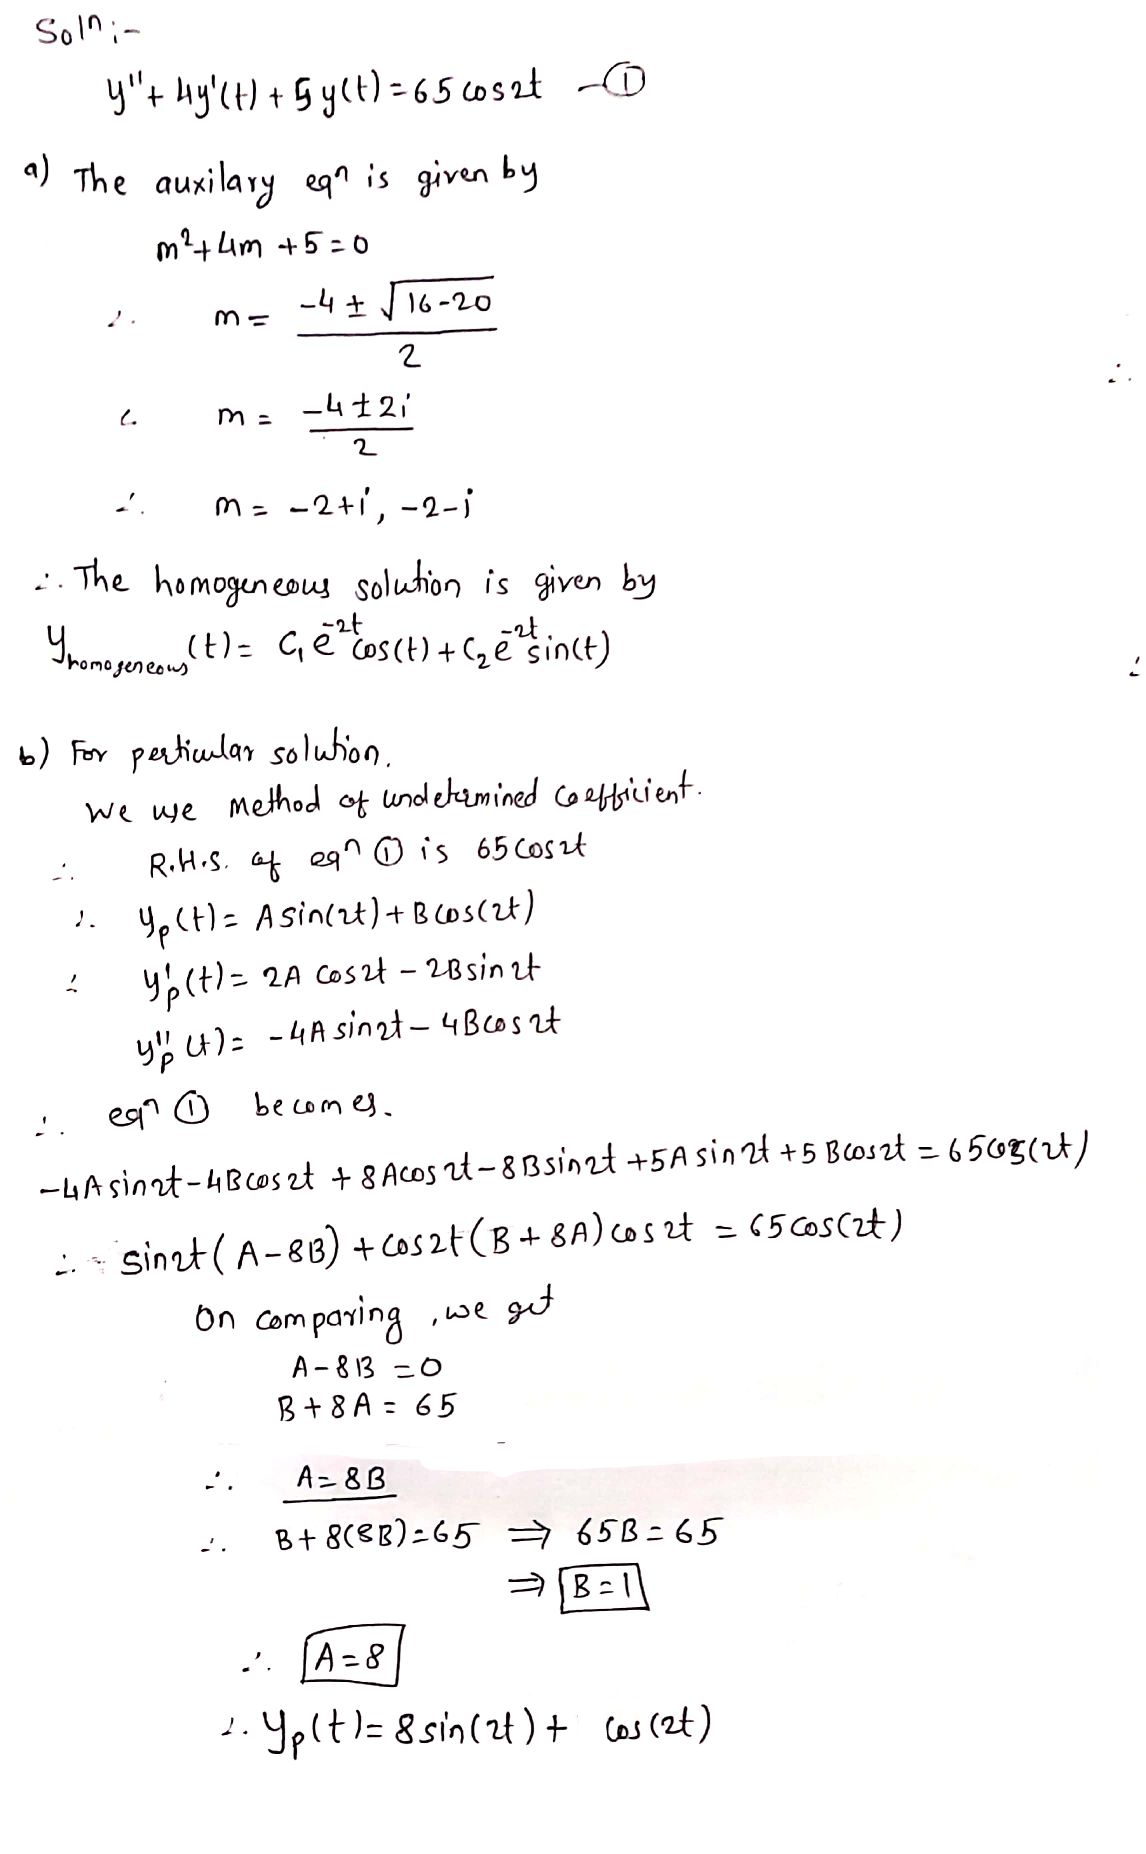 Soln:-
y''+ 4y'(t) + 5y(t) = 65 cos2t —①
a) The auxilary eqn is given by
m²+4m +5=0
∴ m = (-4 ± √16-20)/2
∴ m = (-4±2i)/2
∴ m = -2+i, -2-i
∴ The homogeneous solution is given by
y_homogeneous(t) = C₁e^-2t cos(t) + C₂e^-2t sin(t)
b) For perticular solution,
We use Method of undetermined coefficient.
∴ R.H.S. of eqn ① is 65cos2t
∴ yp(t) = A sin(2t) + B cos(2t)
∴ y'p(t) = 2A cos2t - 2B sin2t
y''p(t) = -4A sin2t - 4B cos2t
∴ eqn ① becomes.
-4A sin2t - 4B cos2t + 8A cos2t - 8B sin2t + 5A sin2t + 5B cos2t = 65cos(2t)
∴ sin2t (A-8B) + cos2t (B+8A) cos2t = 65 cos(2t)
On comparing, we get
A-8B =0
B+8A = 65
∴ A=8B
∴ B+8(8B)=65 ⇒ 65B = 65
⇒ B=1
∴ A=8
∴ yp(t) = 8 sin(2t) + cos(2t)